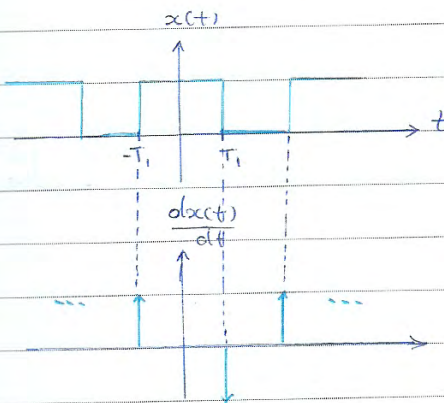 x(t)
t
-T₁ T₁
dx(t)
dt
... ...